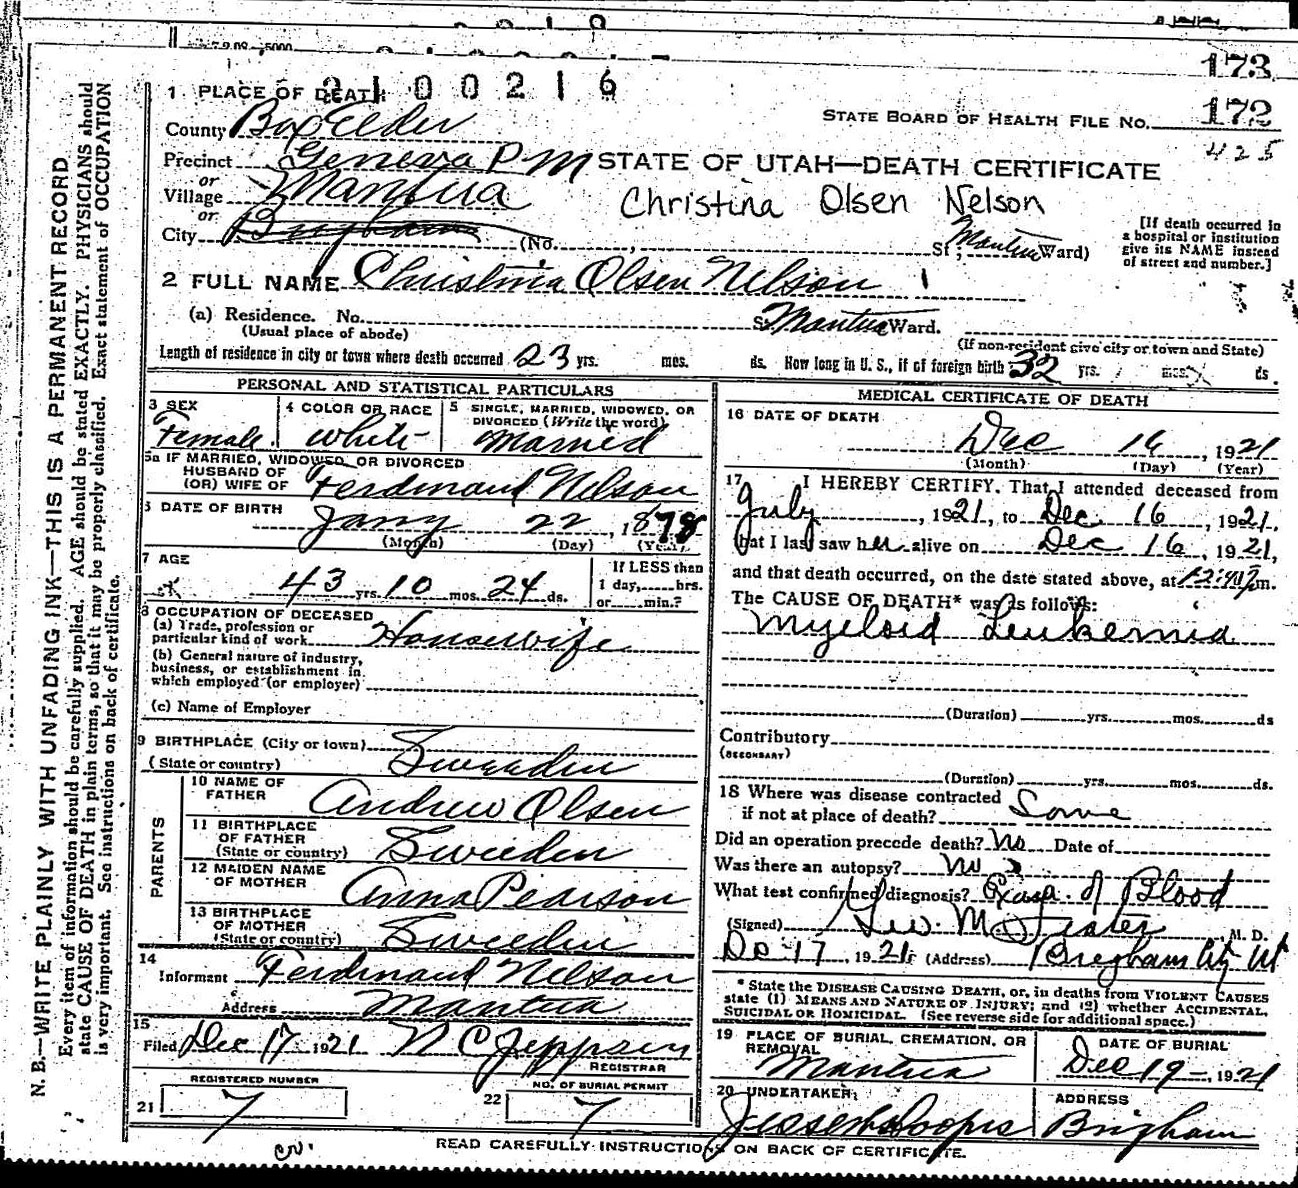 173
2100216
172
425
1 PLACE OF DEATH
STATE BOARD OF HEALTH FILE NO.
County Box Elder
Precinct Geneva P M
STATE OF UTAH—DEATH CERTIFICATE
or
Village Mantua
Christina Olsen Nelson
or
City Brigham (No. , St.; Mantua Ward)
[If death occurred in a hospital or institution give its NAME instead of street and number.]
2 FULL NAME Christina Olsen Nelson
(a) Residence. No. St. Mantua Ward.
(Usual place of abode) (If non-resident give city or town and State)
Length of residence in city or town where death occurred 23 yrs. mos. ds. How long in U. S., if of foreign birth 32 yrs. mos. ds.
PERSONAL AND STATISTICAL PARTICULARS
3 SEX Female
4 COLOR OR RACE White
5 SINGLE, MARRIED, WIDOWED, OR DIVORCED (Write the word) Married
5a IF MARRIED, WIDOWED, OR DIVORCED
HUSBAND OF
(OR) WIFE OF Ferdinand Nelson
6 DATE OF BIRTH Jany 22, 1878
(Month) (Day) (Year)
7 AGE
43 yrs. 10 mos. 24 ds.
If LESS than 1 day, hrs. or min.?
8 OCCUPATION OF DECEASED
(a) Trade, profession or particular kind of work Housewife
(b) General nature of industry, business, or establishment in which employed (or employer)
(c) Name of Employer
9 BIRTHPLACE (City or town)
(State or country) Sweeden
PARENTS
10 NAME OF FATHER Andrew Olsen
11 BIRTHPLACE OF FATHER (State or country) Sweeden
12 MAIDEN NAME OF MOTHER Anna Pearson
13 BIRTHPLACE OF MOTHER (State or country) Sweeden
14
Informant Ferdinand Nelson
Address Mantua
15
Filed Dec 17 1921 N C Jeppsen
REGISTRAR
REGISTERED NUMBER
21 7
NO. OF BURIAL PERMIT
22 7
MEDICAL CERTIFICATE OF DEATH
16 DATE OF DEATH
Dec 16, 1921
(Month) (Day) (Year)
17 I HEREBY CERTIFY, That I attended deceased from
July, 1921, to Dec 16, 1921,
that I last saw her alive on Dec 16, 1921,
and that death occurred, on the date stated above, at m.
The CAUSE OF DEATH* was as follows:
Myeloid Leukemia
(Duration) yrs. mos. ds
Contributory
(SECONDARY)
(Duration) yrs. mos. ds.
18 Where was disease contracted
if not at place of death? Same
Did an operation precede death? No Date of
Was there an autopsy? No
What test confirmed diagnosis? Exam. of Blood
(Signed) M. D.
Dec 17, 1921 (Address) Brigham City Ut
* State the DISEASE CAUSING DEATH, or, in deaths from VIOLENT CAUSES
state (1) MEANS AND NATURE OF INJURY; and (2) whether ACCIDENTAL,
SUICIDAL OR HOMICIDAL. (See reverse side for additional space.)
19 PLACE OF BURIAL, CREMATION, OR REMOVAL
Mantua
DATE OF BURIAL
Dec 19, 1921
20 UNDERTAKER
ADDRESS
Brigham
READ CAREFULLY INSTRUCTIONS ON BACK OF CERTIFICATE.
N. B.—WRITE PLAINLY WITH UNFADING INK—THIS IS A PERMANENT RECORD
Every item of information should be carefully supplied. AGE should be stated EXACTLY. PHYSICIANS should
state CAUSE OF DEATH in plain terms, so that it may be properly classified. Exact statement of OCCUPATION
is very important. See instructions on back of certificate.